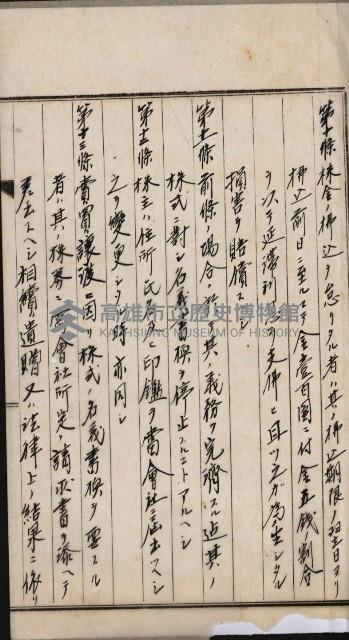 第十條株金ノ拂込ヲ怠リタル者ハ其ノ拂込期限ノ翌日ヨリ
拂込前日ニ至ルマデ金壹百圓ニ付金五錢ノ割合
ヲ以テ延滯利息ヲ支拂ヒ且ツ之ガ為生シタル
損害ヲ賠償スヘシ
第十一條前條ノ場合ニ於テ其ノ義務ヲ完濟スル迄其ノ
株式ニ對シ名義書換ヲ停止スルコトアルヘシ
第十二條株主ハ住所氏名及ヒ印鑑ヲ當會社ニ屆出スヘシ
之ヲ變更シタル時亦同シ
第十三條賣買讓渡ニ因リ株式ノ名義書換ヲ要スル
者ハ其ノ株券ニ當會社所定ノ請求書ヲ添ヘテ
差出スヘシ相續遺贈又ハ法律上ノ結果ニ依リ
高雄市立歷史博物館
KAOHSIUNG MUSEUM OF HISTORY